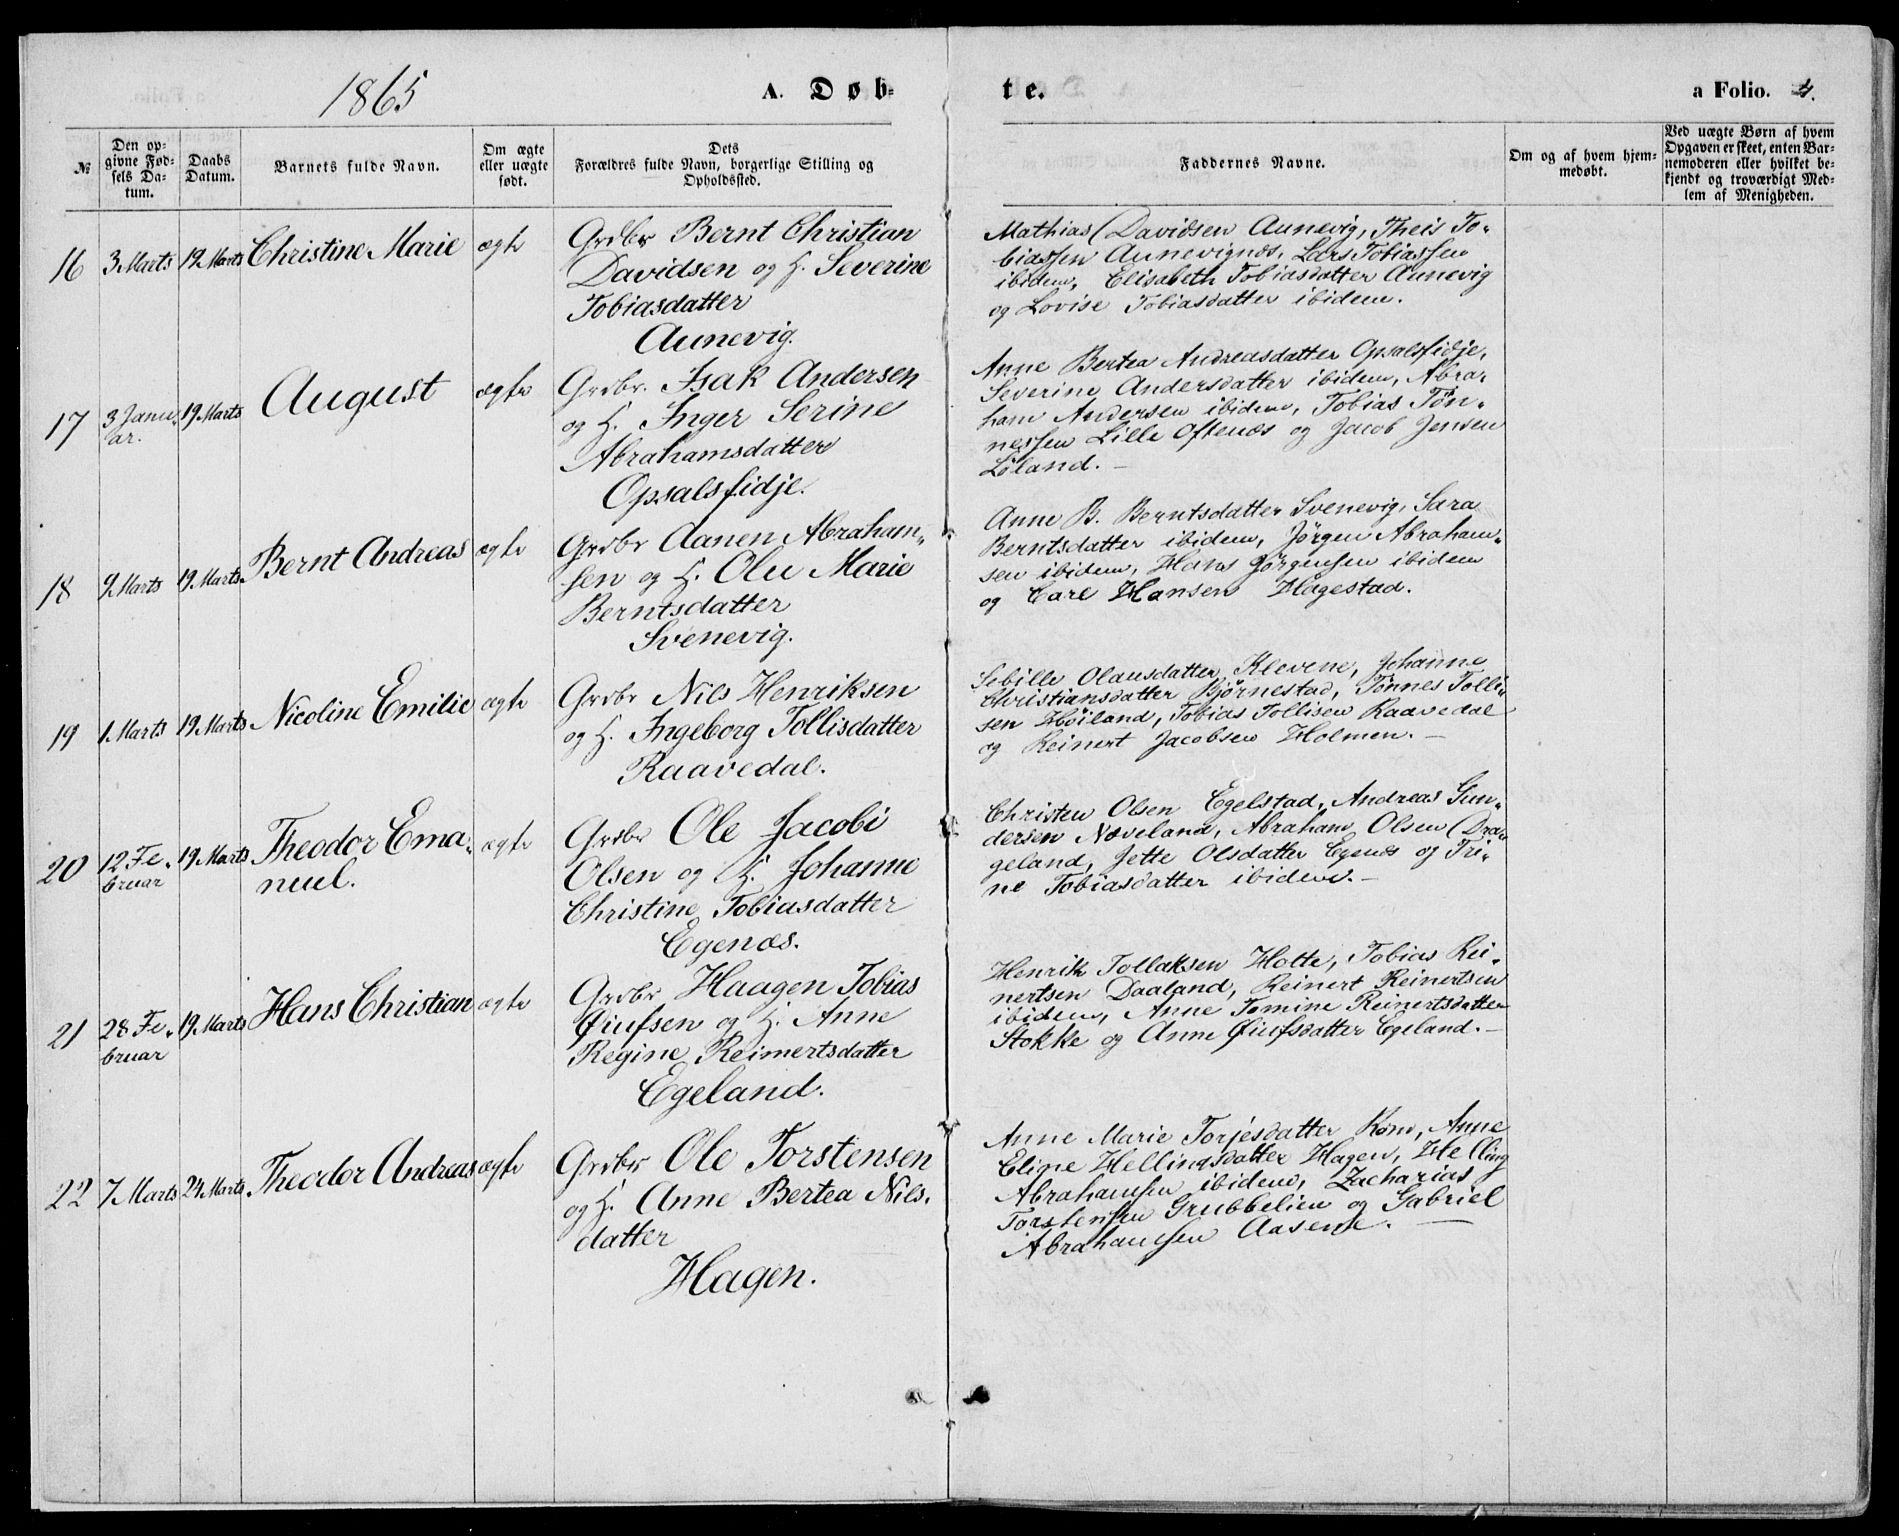 1865
A. Døb-
te.
a Folio. 4.
№
Den op-
givne Fød-
sels Da-
tum.
Daabs
Datum.
Barnets fulde Navn.
Om ægte
eller uægte
født.
Dets
Forældres fulde Navn, borgerlige Stilling og
Opholdssted.
Faddernes Navne.
Om og af hvem hjem-
medøbt.
Ved uægte Børn af hvem
Opgaven er skeet, enten Bar-
nemoderen eller hvilket be-
kjendt og troværdigt Med-
lem af Menigheden.
16
3 Marts
19 Marts
Christine Marie
ægte
Grdbr Bernt Christian
Davidsen og H. Severine
Tobiasdatter
Aunevig.
Mathias Davidsen Aunevig, Theis To-
biassen Aunevignes, Lars Tobiassen
ibidem, Elisabeth Tobiasdatter Aunevig
og Lovise Tobiasdatter ibidem.
17
3 Janu-
ar.
19 Marts
August
ægte
Grdbr. Isak Andersen
og H. Inger Serine
Abrahamsdatter
Opsalsfidje.
Anne Bertea Andreasdatter Opsalsfidje,
Severine Andersdatter ibidem, Abra-
ham Andersen ibidem, Tobias Tøn-
nessen Lille Oftenæs og Jacob Jensen
Løland. -
18
9 Marts
19 Marts
Bernt Andreas
ægte
Grdbr Aanen Abraham-
sen og H. Olu Marie
Berntsdatter
Svenevig.
Anne B. Berntsdatter Svenevig, Sara
Berntsdatter ibidem, Jørgen Abraham-
sen ibidem, Hans Jørgensen ibidem
og Carl Hansen Hagestad.
19
1 Marts
19 Marts
Nicoline Emilie
ægte
Grdbr Nils Henriksen
og H. Ingeborg Tollisdatter
Raavedal.
Sibille Olausdatter Klevene, Johanne
Christiansdatter Bjørnestad, Tønnes Tolli-
sen Høiland, Tobias Tollisen Raavedal
og Reinert Jacobsen Holmen. -
20
12 Fe-
bruar
19 Marts
Theodor Ema-
nuel.
ægte
Grdbr Ole Jacobi
Olsen og H. Johanne
Christine Tobiasdatter
Egenæs.
Christen Olsen Egelstad, Andreas Gun-
dersen Næveland, Abraham Olsen Dran-
geland, Jette Olsdatter Egenæs og Tri-
ne Tobiasdatter ibidem. -
21
28 Fe-
bruar
19 Marts
Hans Christian
ægte
Grdbr Haagen Tobias
Øiufsen og H. Anne
Regine Reinertsdatter
Egeland.
Henrik Tollaksen Holte, Tobias Rei-
nertsen Daaland, Reinert Reinertsen
ibidem, Anne Tomine Reinertsdatter
Stokke og Anne Øiufsdatter Egeland. -
22
7 Marts
24 Marts
Theodor Andreas
ægte
Grdbr Ole Torstensen
og H. Anne Bertea Nils-
datter
Hagen.
Anne Marie Torjesdatter Kom, Anne
Eline Hellingsdatter Hagen, Helling
Abrahamsen ibidem, Zacharias
Torstensen Grubbelien og Gabriel
Abrahamsen Aasene. -